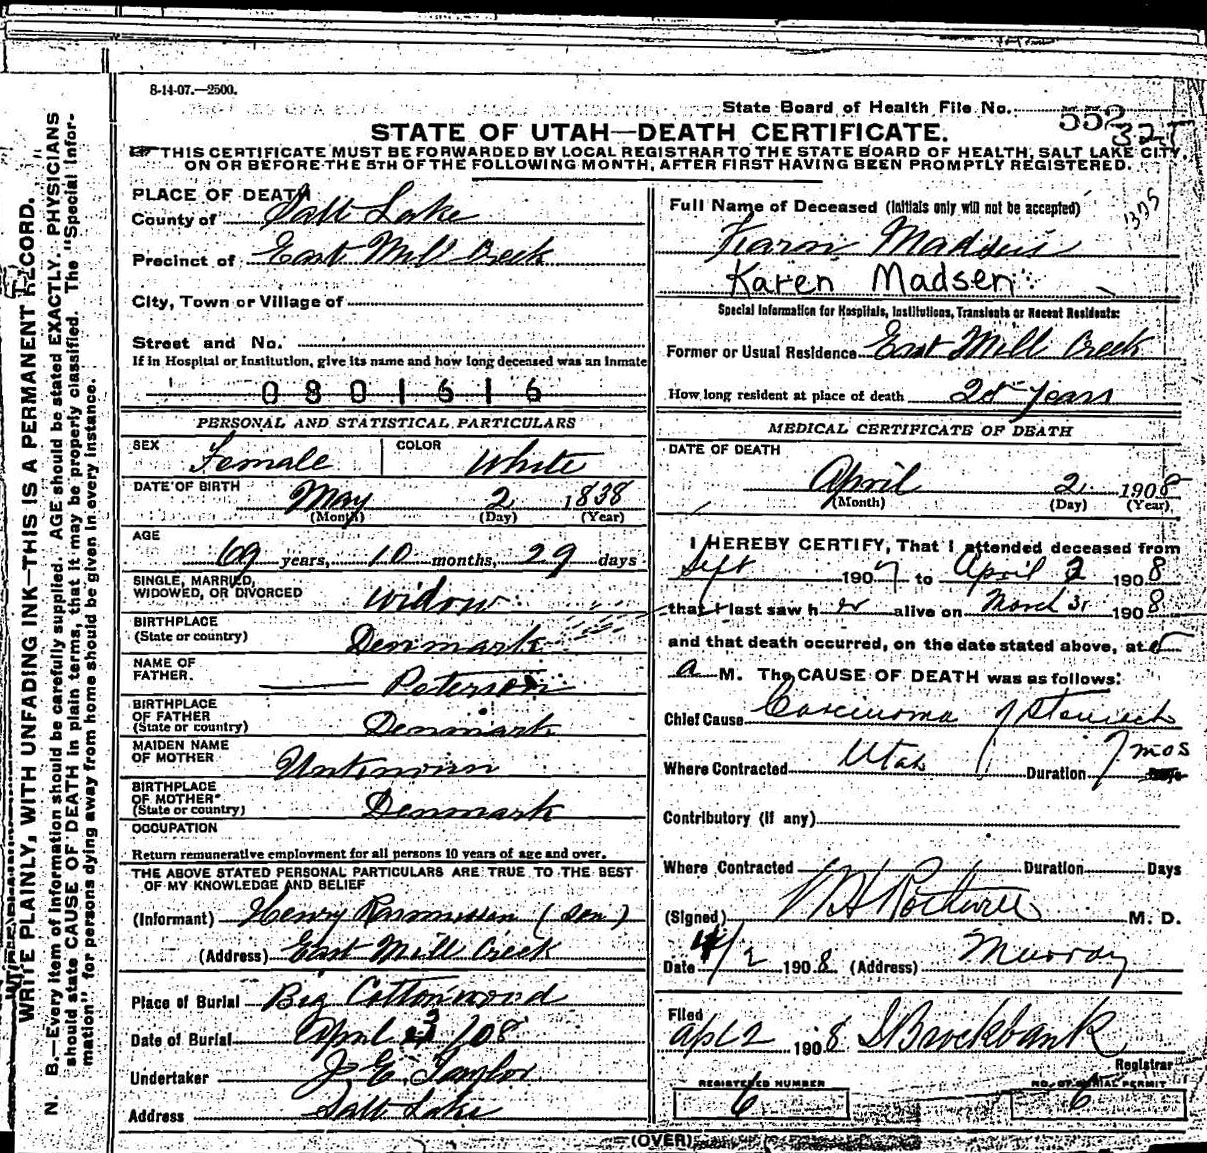 8-14-07.—2500.
State Board of Health File No. 552
325
STATE OF UTAH—DEATH CERTIFICATE.
THIS CERTIFICATE MUST BE FORWARDED BY LOCAL REGISTRAR TO THE STATE BOARD OF HEALTH, SALT LAKE CITY,
ON OR BEFORE THE 5TH OF THE FOLLOWING MONTH, AFTER FIRST HAVING BEEN PROMPTLY REGISTERED.
PLACE OF DEATH
County of Salt Lake
Precinct of East Mill Creek
City, Town or Village of
Street and No.
If in Hospital or Institution, give its name and how long deceased was an inmate
0801616
PERSONAL AND STATISTICAL PARTICULARS
SEX Female COLOR White
DATE OF BIRTH May 2 1838
(Month) (Day) (Year)
AGE
69 years, 10 months, 29 days
SINGLE, MARRIED,
WIDOWED, OR DIVORCED widow
BIRTHPLACE
(State or country) Denmark
NAME OF
FATHER. Peterson
BIRTHPLACE
OF FATHER
(State or country) Denmark
MAIDEN NAME
OF MOTHER Unknown
BIRTHPLACE
OF MOTHER
(State or country) Denmark
OCCUPATION
Return remunerative employment for all persons 10 years of age and over.
THE ABOVE STATED PERSONAL PARTICULARS ARE TRUE TO THE BEST
OF MY KNOWLEDGE AND BELIEF
(Informant) Henry Rasmussen (Son)
(Address) East Mill Creek
Place of Burial Big Cottonwood
Date of Burial April 3 /08
Undertaker J. E. Taylor
Address Salt Lake
Full Name of Deceased (Initials only will not be accepted)
1375
Madsen
Karen Madsen
Special Information for Hospitals, Institutions, Transients or Recent Residents:
Former or Usual Residence East Mill Creek
How long resident at place of death years
MEDICAL CERTIFICATE OF DEATH
DATE OF DEATH
April 2 1908
(Month) (Day) (Year)
I HEREBY CERTIFY, That I attended deceased from
Sept 1907 to April 2 1908
that I last saw her alive on March 31 1908
and that death occurred, on the date stated above, at 5
a M. The CAUSE OF DEATH was as follows:
Chief Cause Carcinoma of Stomach
Where Contracted Utah Duration 7 mos
Contributory (if any)
Where Contracted Duration Days
(Signed) M. D.
Date 4/2 1908 (Address) Murray
Filed
Apl 2 1908 Brockbank
Registrar
REGISTERED NUMBER
6
NO. OF BURIAL PERMIT
6
(OVER)
WRITE PLAINLY, WITH UNFADING INK—THIS IS A PERMANENT RECORD.
N. B.—Every item of information should be carefully supplied. AGE should be stated EXACTLY. PHYSICIANS
should state CAUSE OF DEATH in plain terms, that it may be properly classified. The "Special Infor-
mation" for persons dying away from home should be given in every instance.